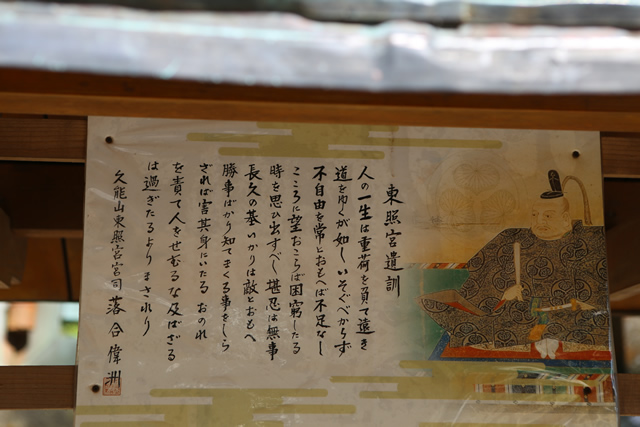 東照宮遺訓
人の一生は重荷を負て遠き
道をゆくが如し いそぐべからず
不自由を常とおもへば不足なし
こころに望おこらば困窮したる
時を思ひ出すべし 堪忍は無事
長久の基 いかりは敵とおもへ
勝事ばかり知てまくる事をしら
ざれば害其身にいたる おのれ
を責て人をせむるな 及ばざる
は過ぎたるより まされり
久能山東照宮宮司 落合偉洲